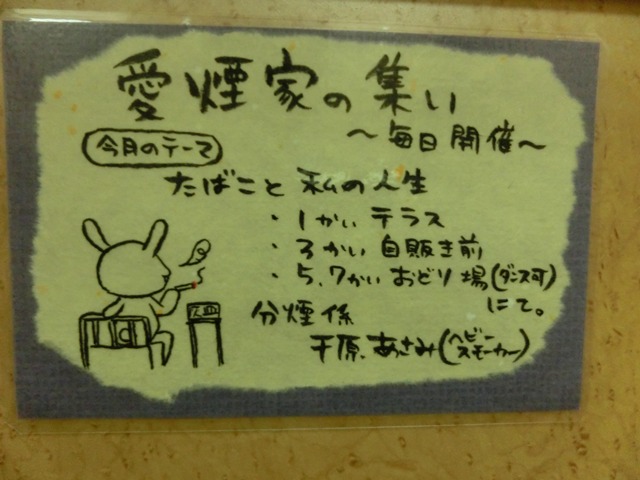 愛煙家の集い
〜毎日開催〜
今月のテーマ
たばこと私の人生
・1かい テラス
・3かい 自販き前
・5,7かい おどり場(ダンス可)
にて。
分煙係
干原.あさみ(ヘビースモーカー)